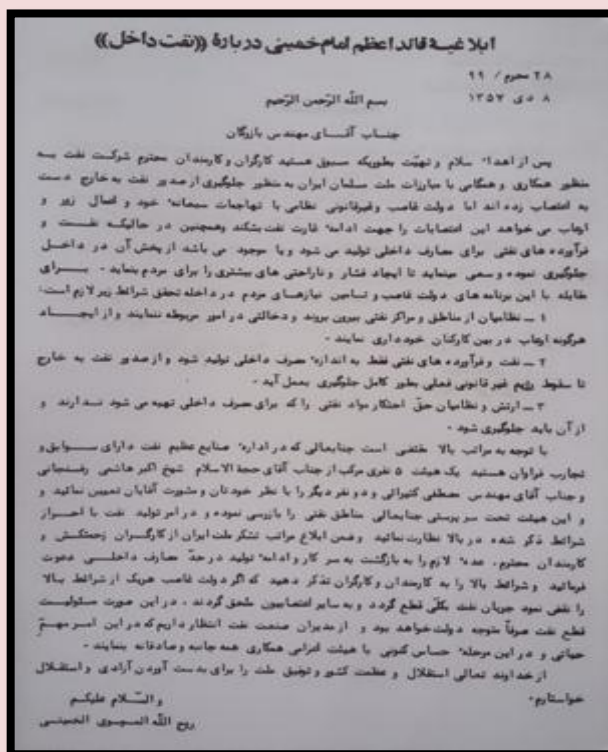 ابلاغیهٔ قائد اعظم امام خمینی دربارهٔ ((نفت داخل))
۲۸ محرم / ۹۹
۸ دی ۱۳۵۷
بسم اللّه الرّحمن الرّحیم
جناب آقـای مهندس بازرگان
پس از اهداء سلام و تهیّت بطوریکه مسبوق هستید کارگران و کارمندان محترم شرکت نفت به
منظور همکاری و همگامی با مبارزات ملت مسلمان ایران به منظور جلوگیری از صدور نفت به خارج دست
به اعتصاب زده اند اما دولت غاصب وغیرقانونی نظامی با تهاجمات سبعانهٔ خود و اعمال زور و
ارعاب می خواهد این اعتصابات را جهت ادامهٔ غارت نفت بشکند وهمچنین در حالیکه نفـت و
فرآورده های نفتی برای مصارف داخلی تولید می شود و یا موجود می باشد از پخش آن در داخـل
جلوگیری نموده و سعی مینماید تا ایجاد فشار و ناراحتی های بیشتری را برای مردم بنماید - بـرای
مقابله با این برنامه های دولت غاصب و تـامین نیازهـای مردم در داخله تحقق شرائط زیر لازم است:
۱ ــ نظامیان از مناطق و مراکز نفتی بیرون بروند و دخالتی در امور مربوطه ننمایند و از ایجـاد
هرگونه ارعاب در بین کارکنان خودداری نمایند -
۲ ــ نفت و فرآورده های نفتی فقط به اندازهٔ مصرف داخلی تولید شود و از صدور نفت به خارج
تا سقوط رژیم غیر قانونی فعلی بطور کامل جلوگیری بعمل آید -
۳ ــ ارتش و نظامیان حقّ احتکار مواد نفتی را که برای مصرف داخلی تهیه می شود نـدارند و
از آن باید جلوگیری شود -
با توجه به مراتب بالا مقتضی است جنابعالی که در ادارهٔ صنایع عظیم نفت دارای سـوابق و
تجارب فراوان هستید یک هیئت ۵ نفری مرکب از جناب آقای حجة الاسلام شیخ اکبر هاشمی رفسنجانی
و جناب آقای مهندس مصطفی کتیرائی و دو نفر دیگر را با نظر خودتان و مشورت آقایان تعیین نمائید و
این هیئت تحت سرپرستی جنابعالی مناطق نفتی را بازرسی نموده و در امر تولید نفت با احـراز
شرائط ذکر شده در بالا نظارت نمائید وضمن ابلاغ مراتب تشکر ملت ایران از کارگـران زحمتکش و
کارمندان محترم، عدهٔ لازم را به بازگشت به سر کار و ادامهٔ تولید در حدّ مصارف داخلـی دعوت
فرمائید و شرائط بالا را به کارمندان و کارگران تذکر دهید که اگر دولت غاصب هریک از شرائط بـالا
را نقض نمود جریان نفت بکلّی قطع گردد و به سایر اعتصابیون ملحق گردند ، در این صورت مسئولیـت
قطع نفت صرفاً متوجه دولت خواهد بود و از مدیران صنعت نفت انتظار داریم که در این امـر مهـمّ
حیاتی و در این مرحلهٔ حساس کنونی با هیئت اعزامی همکاری همه جانبه و صادقانه بنمایند -
از خداوند تعالی استقلال و عظمت کشور و توفیق ملت را برای بدست آوردن آزادی و استقلال
خواستارم -
و السّـلام علیکـم
روح اللّه المـوسوی الخمینـی